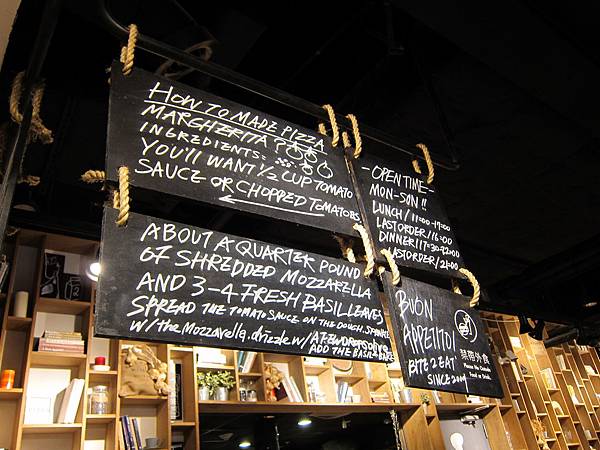 HOW TO MADE PIZZA
MARGHERITA
INGREDIENTS:
YOU'LL WANT 1/2 CUP TOMATO
SAUCE OR CHOPPED TOMATOES
ABOUT A QUARTER POUND
OF SHREDDED MOZZARELLA
AND 3-4 FRESH BASIL LEAVES
SPREAD THE TOMATO SAUCE ON THE DOUGH.
W/ THE MOZZARELLA. drizzle W/ A FEW DROPS
ADD THE BASIL
-OPEN TIME-
MON-SUN!!
LUNCH/11:00-17:00
LAST ORDER/16:00
DINNER/17:30-22:00
LAST ORDER/21:00
BUON
APPETITO!
BITE 2 EAT
SINCE
禁帶外食